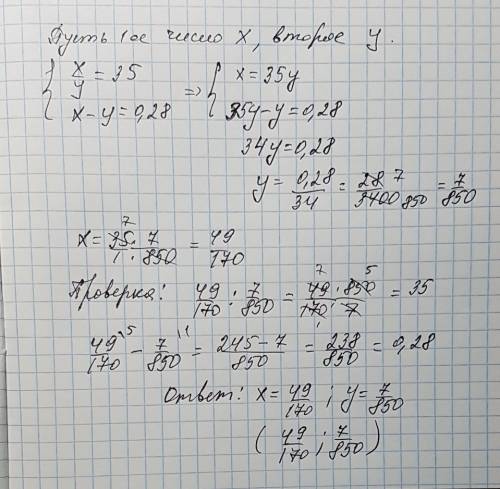 Пусть 1ое число x, второе y.
{ x/y = 35 => { x = 35y
x - y = 0,28 35y - y = 0,28
34y = 0,28
y = 0,28/34 = 28/3400 7 850 = 7/850
x = 35/1 · 7/850 7 = 49/170
Проверка: 49/170 : 7/850 = 49 · 850/170 · 7 7 5 1 = 35
49/170 \5 - 7/850 \1 = 245 - 7/850 = 238/850 = 0,28
Ответ: x = 49/170 ; y = 7/850
( 49/170 ; 7/850 )